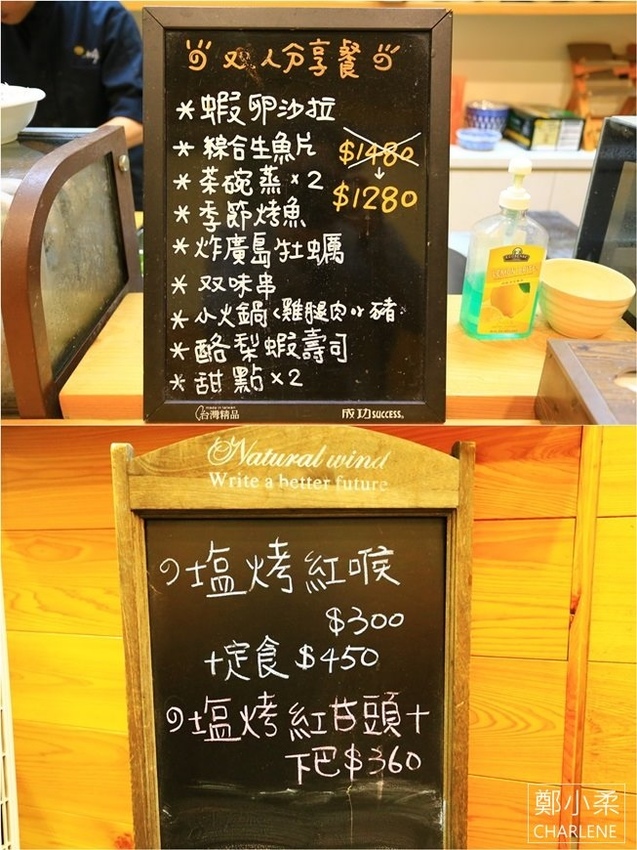 双人分享餐
* 蝦卵沙拉
* 綜合生魚片
$1480
* 茶碗蒸 x 2
$1280
* 季節烤魚
* 炸廣島牡蠣
* 双味串
* 小火鍋(雞腿肉or豬)
* 酪梨蝦壽司
* 甜點 x 2
台灣精品
成功SUCCESS
Natural wind
Write a better future
塩烤紅喉
$300
+定食 $450
塩烤紅甘頭+
下巴$360
鄭小柔
CHARLENE